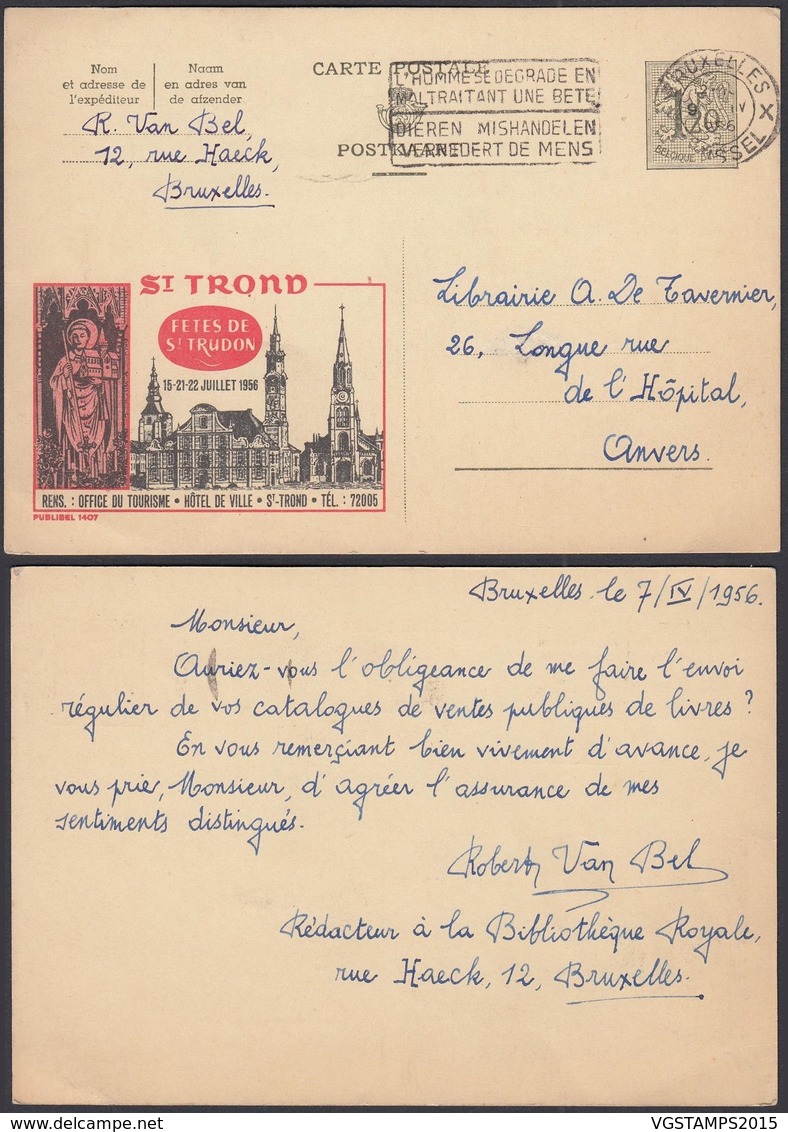 Nom
et adresse de
l'expéditeur
Naam
en adres van
de afzender
CARTE POSTALE
POSTKAART
L'HOMME SE DEGRADE EN
MALTRAITANT UNE BETE
DIEREN MISHANDELEN
VERNEDERT DE MENS
BRUXELLES X
BRUSSEL
1F20
BELGIQUE
R. Van Bel,
12, rue Haeck,
Bruxelles.
ST TROND
FETES DE
ST TRUDON
15-21-22 JUILLET 1956
RENS. : OFFICE DU TOURISME • HÔTEL DE VILLE • ST-TROND • TÉL. : 72005
PUBLIBEL 1407
Librairie A. De Tavernier,
26, Longue rue
de l'Hôpital,
Anvers.
Bruxelles le 7/IV/1956.
Monsieur,
Auriez-vous l'obligeance de me faire l'envoi
régulier de vos catalogues de ventes publiques de livres?
En vous remerçiant bien vivement d'avance, je
vous prie, Monsieur, d'agréer l'assurance de mes
sentiments distingués.
Robert Van Bel
Rédacteur à la Bibliothèque Royale,
rue Haeck, 12, Bruxelles.
VGSTAMPS2015